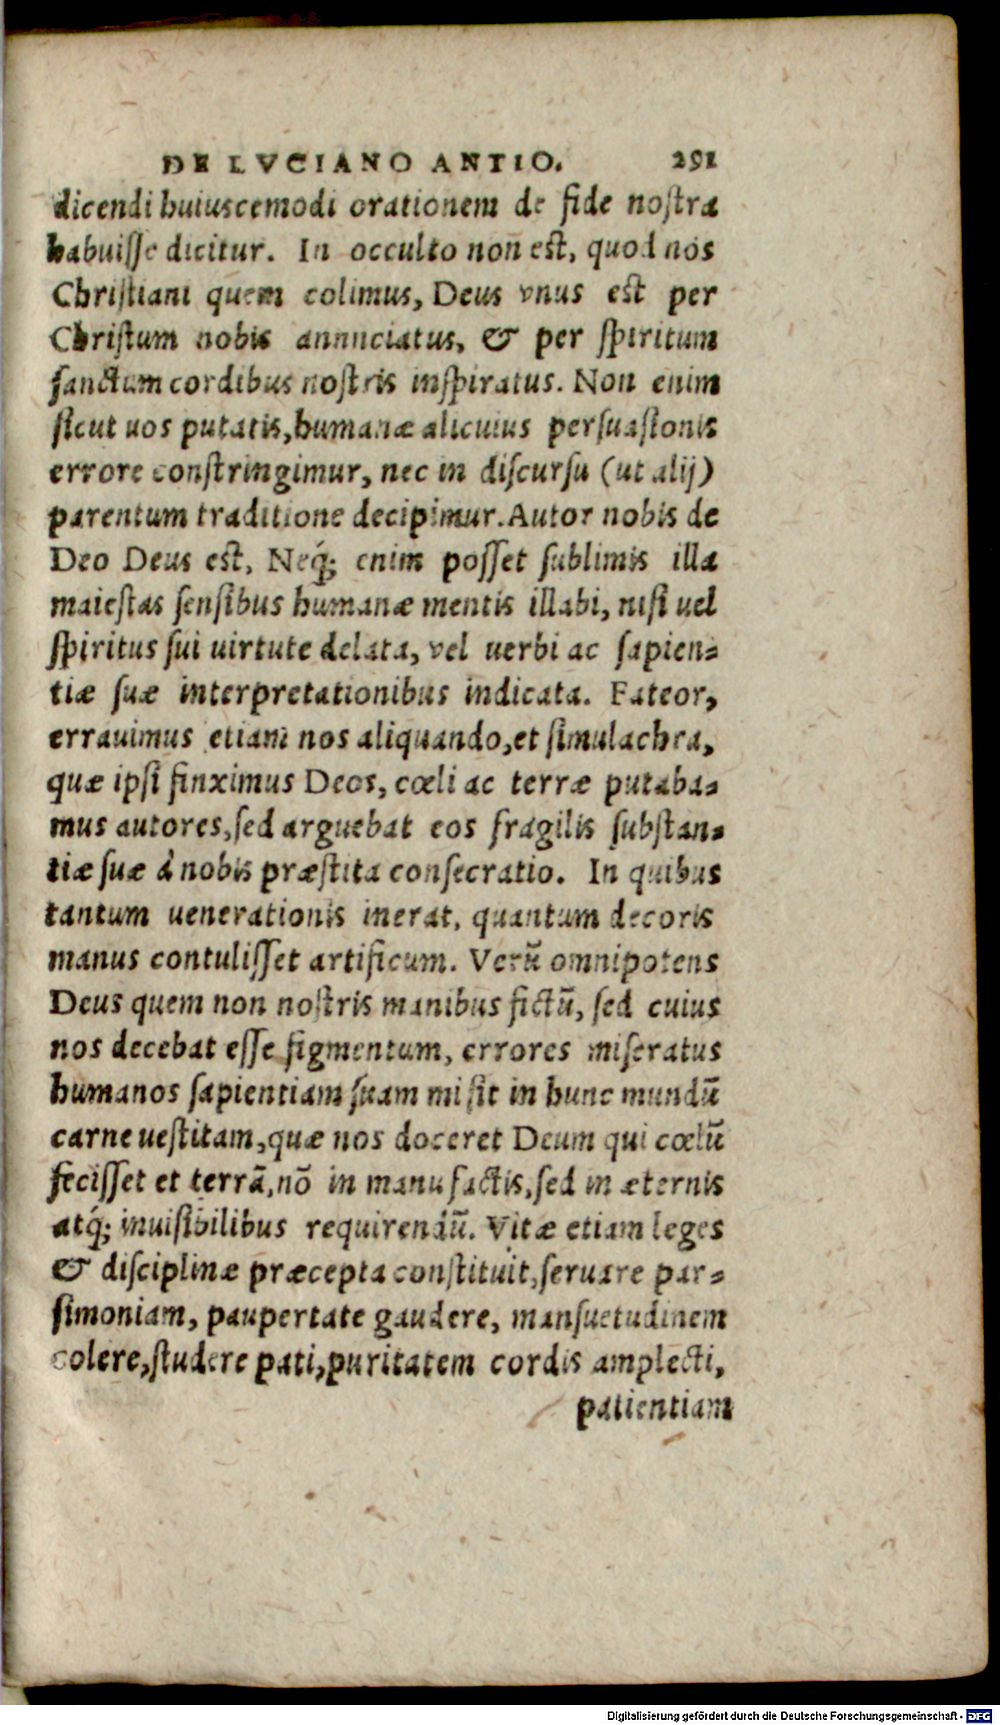 DE LVCIANO ANTIO. 291
dicendi huiuscemodi orationem de fide nostra
habuisse dicitur. In occulto non est, quod nos
Christiani quem colimus, Deus vnus est per
Christum nobis annunciatus, & per spiritum
sanctum cordibus nostris inspiratus. Non enim
sicut uos putatis, humanæ alicuius persuasionis
errore constringimur, nec in discursu (ut alij)
parentum traditione decipimur. Autor nobis de
Deo Deus est, Neq́; enim posset sublimis illa
maiestas sensibus humanæ mentis illabi, nisi uel
spiritus sui uirtute delata, vel uerbi ac sapien=
tiæ suæ interpretationibus indicata. Fateor,
errauimus etiam nos aliquando, et simulachra,
quæ ipsi finximus Deos, cœli ac terræ putaba=
mus autores, sed arguebat eos fragilis substan=
tiæ suæ à nobis præstita consecratio. In quibus
tantum uenerationis inerat, quantum decoris
manus contulisset artificum. Verũ omnipotens
Deus quem non nostris manibus fictũ, sed cuius
nos decebat esse figmentum, errores miseratus
humanos sapientiam suam misit in hunc mundũ
carne uestitam, quæ nos doceret Deum qui cœlũ
fecisset et terrã, nõ in manu factis, sed in æternis
atq́; inuisibilibus requirendũ. Vitæ etiam leges
& disciplinæ præcepta constituit, seruare par=
simoniam, paupertate gaudere, mansuetudinem
colere, studere pati, puritatem cordis amplecti,
patientiam
Digitalisierung gefördert durch die Deutsche Forschungsgemeinschaft - DFG